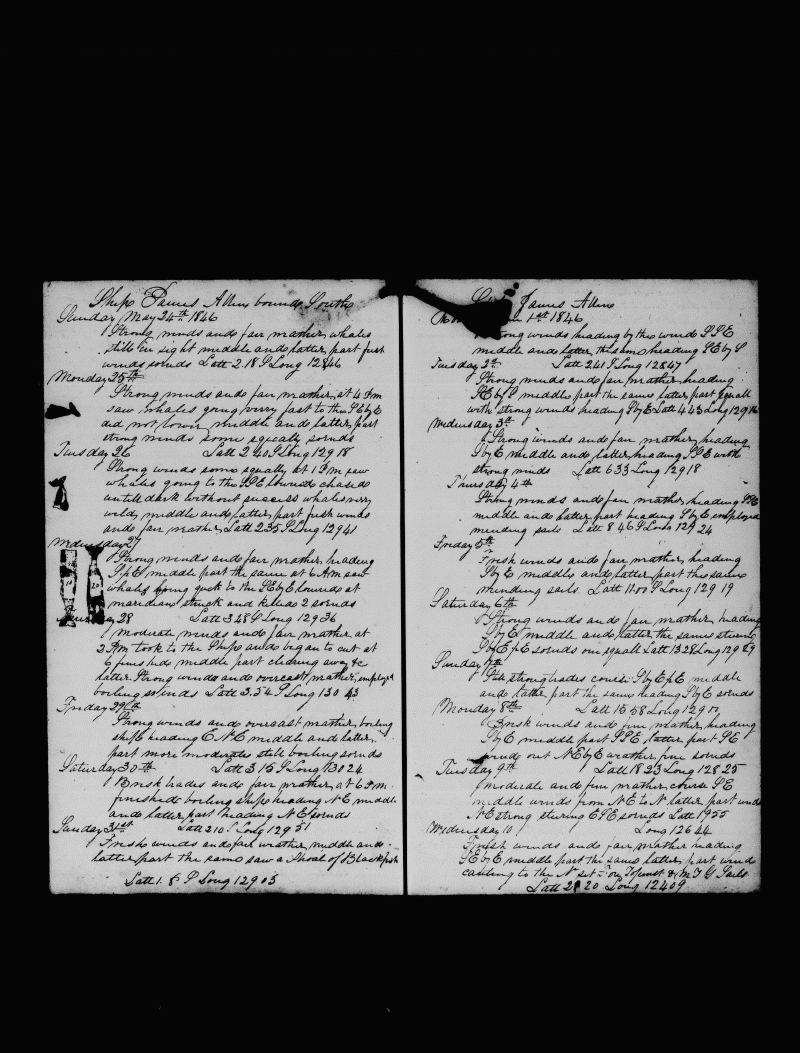 Ship James Allen bound South
Sunday May 24th 1846
Strong winds and fair weather whales
still in sight middle and latter part fresh
winds so ends Latt 2.18 S Long 128 46
Monday 25th
Strong winds and fair weather at 4 Pm
saw whales going verry fast to the SE by E
did not lower middle and latter part
strong winds some squally so ends
Tuesday 26 Latt 2 40 S Long 129 18
Strong winds some squally at 1 Pm saw
whales going to the SSE lowered chased
untill dark without success whales very
wild middle and latter part fresh winds
and fair weather Latt 2 35 S Long 129 41
Wednesday 27
Strong winds and fair weather heading
middle part the same at 6 Am saw
whales going quick to the SE by E lowered at
meridean struck and killed 2 so ends
28 Latt 3 48 S Long 129 36
Moderate winds and fair weather at
2 Pm took to the Ship and began to cut at
6 finished middle part clearing away &c
latter Strong winds and overcast weather employed
boiling so ends Latt 3.54 S Long 130 43
Friday 29th
Strong winds and overcast weather boiling
ship heading E N E middle and latter
part more moderate still boiling so ends
Saturday 30th Latt 3 15 S Long 130 24
Brisk trades and fair weather at 6 Pm
finished boiling ship heading N E middle
and latter part heading N E so ends
Sunday 31st Latt 2 10 S Long 129 51
Fresh winds and fair weather middle and
latter part the same saw a Shoal of Blackfish
Latt 1. 8 S Long 129 05
James Allen
1st 1846
Strong winds heading by the wind SSE
middle and latter the same heading SE by S
Tuesday 2d Latt 2 41 S Long 128 47
Strong winds and fair weather heading
SE by S middle part the same latter part squall
with strong winds heading S by E Latt 4 43 Long 129 16
Wednesday 3d
Strong winds and fair weather heading
S by E middle and latter heading SSE with
strong winds Latt 6 33 Long 129 18
Thursday 4th
Strong winds and fair weather heading SSE
middle and latter part heading S by E employed
mending sails Latt 8 46 S Long 129 24
Friday 5th
Fresh winds and fair weather heading
S by E middle and latter part the same
mending sails Latt 11.00 S Long 129 19
Saturday 6th
Strong winds and fair weather heading
S by E middle and latter the same steering
so ends one squall Latt 13 28 Long 129 29
Sunday 7th
strong trades course middle
and latter part the same heading S by E so ends
Monday 8th Latt 15 58 Long 129 00
Brisk winds and fine weather heading
S by E middle part SSE latter part SE
wind out N E by E weather fine so ends
Tuesday 9th Latt 18 23 Long 128 25
Moderate and fine weather course SE
middle winds from N E to N latter part wind
N E strong stering E S E so ends Latt 19 55
Wednesday 10 Long 126 44
Fresh winds and fair weather heading
SE by E middle part the same latter part wind
canting to the N set our Topmst & M T G Sails
Latt 21 20 Long 124 09